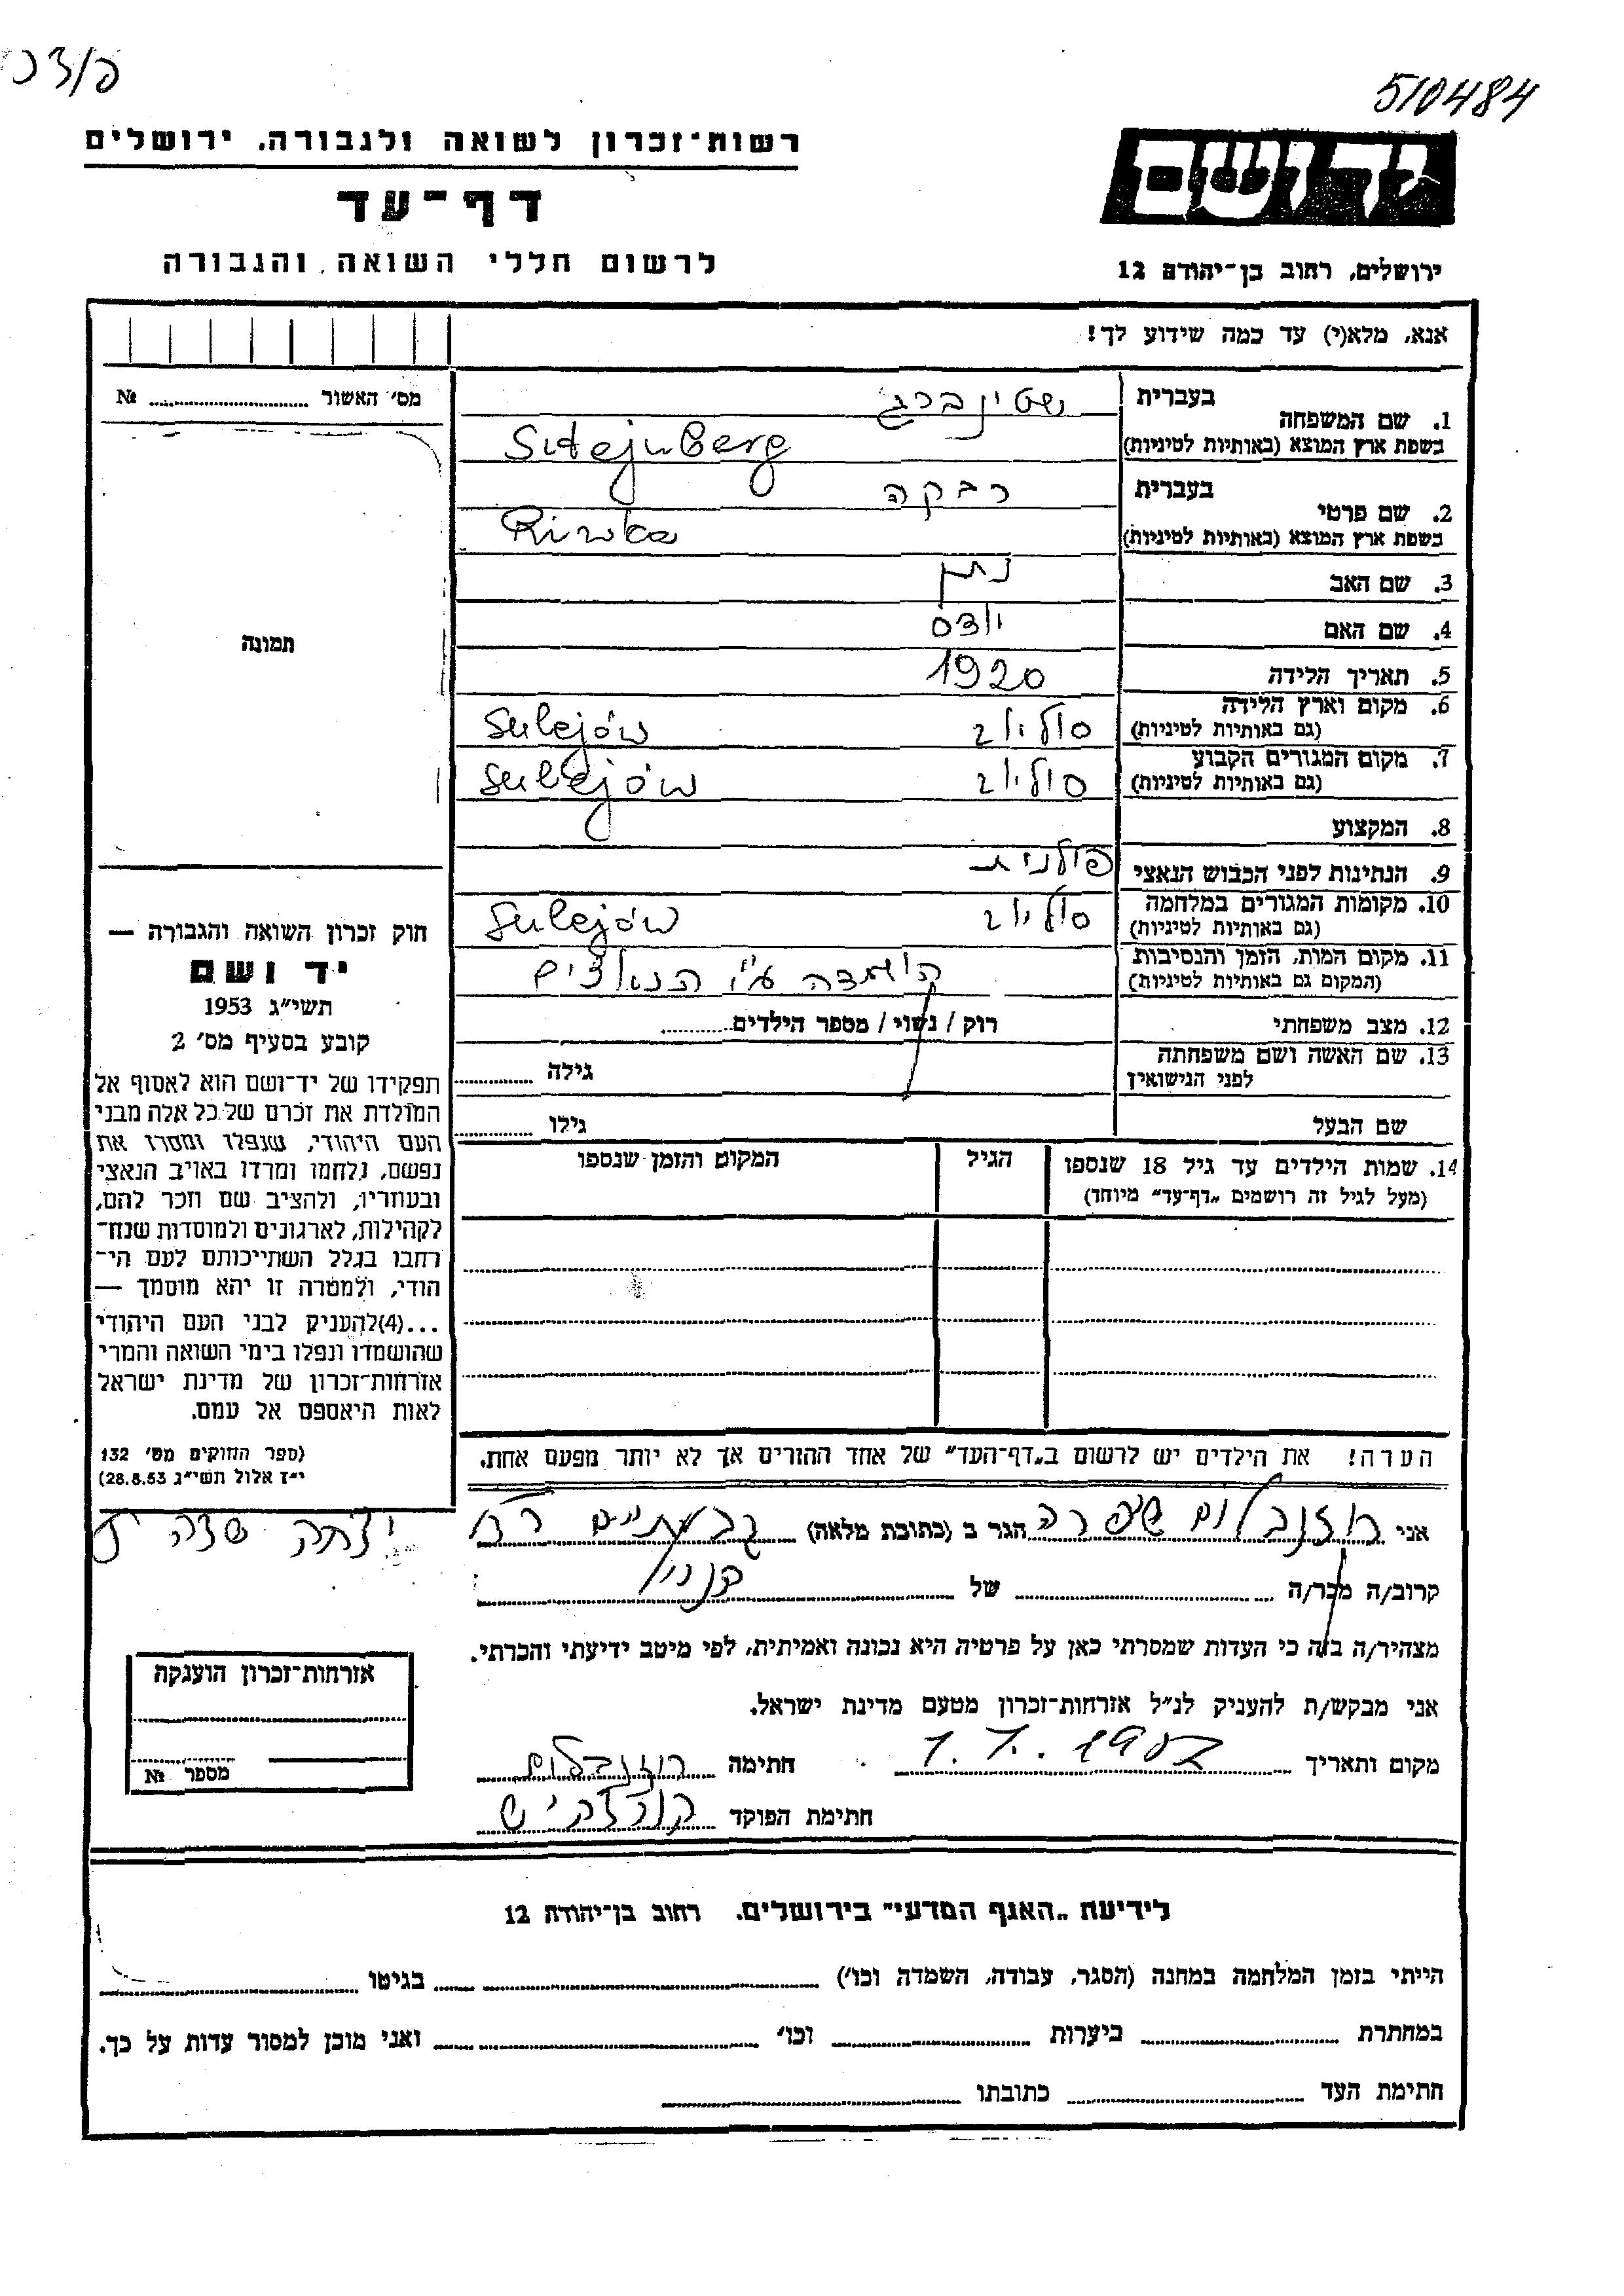 510484
רשות־זכרון לשואה ולגבורה, ירושלים
יד ושם
דף־עד
לרשום חללי השואה והגבורה
ירושלים, רחוב בן־יהודה 12
אנא, מלא(י) עד כמה שידוע לך!
מס׳ האשור № ...
בעברית שטינברג
1. שם המשפחה
בשפת ארץ המוצא (באותיות לטיניות) Sztejnberg
בעברית רבקה
2. שם פרטי
בשפת ארץ המוצא (באותיות לטיניות) Riwka
3. שם האב נתן
4. שם האם
תמונה
5. תאריך הלידה 1920
6. מקום וארץ הלידה
(גם באותיות לטיניות) סוליוב Sulejów
7. מקום המגורים הקבוע
(גם באותיות לטיניות) סוליוב Sulejów
8. המקצוע
9. הנתינות לפני הכבוש הנאצי פולנית
10. מקומות המגורים במלחמה
(גם באותיות לטיניות) סוליוב Sulejów
11. מקום המות, הזמן והנסיבות
(המקום גם באותיות לטיניות) הושמדה ע״י הנאצים
12. מצב משפחתי רוק / נשוי / מספר הילדים ...
13. שם האשה ושם משפחתה
לפני הנישואין גילה ...
שם הבעל גילו ...
14. שמות הילדים עד גיל 18 שנספו הגיל המקום והזמן שנספו
(מעל לגיל זה רושמים „דף־עד״ מיוחד)
חוק זכרון השואה והגבורה —
יד ושם
תשי״ג 1953
קובע בסעיף מס׳ 2
תפקידו של יד־ושם הוא לאסוף אל
המולדת את זכרם של כל אלה מבני
העם היהודי, שנפלו ומסרו את
נפשם, נלחמו ומרדו באויב הנאצי
ובעוזריו, ולהציב שם וזכר להם,
לקהילות, לארגונים ולמוסדות שנח־
רבו בגלל השתייכותם לעם הי־
הודי, ולמטרה זו יהא מוסמך —
...(4)להעניק לבני העם היהודי
שהושמדו ונפלו בימי השואה והמרי
אזרחות־זכרון של מדינת ישראל
לאות היאספם אל עמם.
(ספר החוקים מס׳ 132
י״ז אלול תשי״ג 28.8.53)
הערה! את הילדים יש לרשום ב„דף־העד״ של אחד ההורים אך לא יותר מפעם אחת.
אני רוזנבלום שפרה הגר ב (כתובת מלאה) גבעתיים רח יצחק שדה
קרוב/ה מכר/ה ... של ...
מצהיר/ה בזה כי העדות שמסרתי כאן על פרטיה היא נכונה ואמיתית, לפי מיטב ידיעתי והכרתי.
אני מבקש/ת להעניק לנ״ל אזרחות־זכרון מטעם מדינת ישראל.
מקום ותאריך חתימה רוזנבלום
חתימת הפוקד
אזרחות־זכרון הוענקה
מספר №
לידיעת „האגף המדעי״ בירושלים. רחוב בן־יהודה 12
הייתי בזמן המלחמה במחנה (הסגר, עבודה, השמדה וכו׳) ... בגיטו ...
במחתרת ... ביערות ... וכו׳ ... ואני מוכן למסור עדות על כך.
חתימת העד ... כתובתו ...